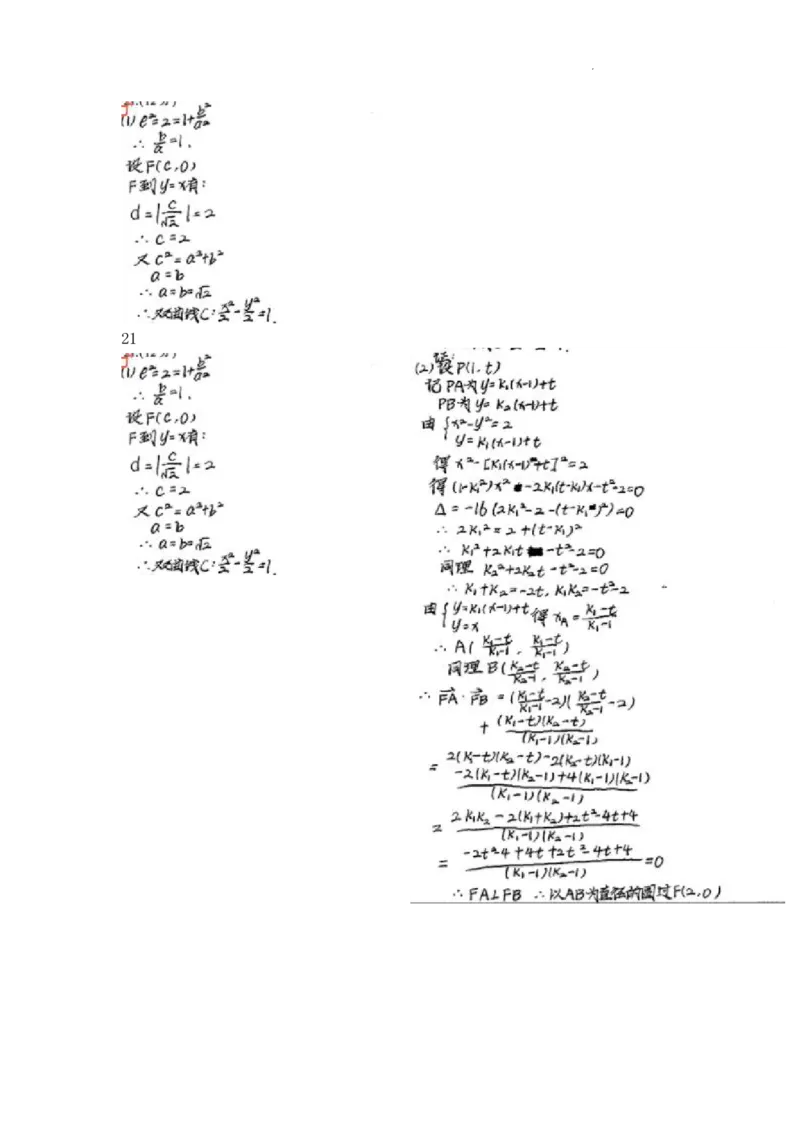 (1) e²=2=1+b²/a²
∴ b/a=1.
设F(C,0)
F到y=x有:
d=|c/√2|=2
∴ c=2
又c²=a²+b²
a=b
∴ a=b=√2
∴双曲线C:x²/2-y²/2=1.
21
(1) e²=2=1+b²/a²
∴ b/a=1.
设F(C,0)
F到y=x有:
d=|c/√2|=2
∴ c=2
又c²=a²+b²
a=b
∴ a=b=√2
∴双曲线C:x²/2-y²/2=1.
(2)设P(1,t)
记PA为y=k₁(x-1)+t
PB为y=k₂(x-1)+t
由{x²-y²=2
y=k₁(x-1)+t
得x²-[k₁(x-1)+t]²=2
得(1-k₁²)x²-2k₁(t-k₁)x-t²-2=0
Δ=-16(2k₁²-2-(t-k₁)²)=0
∴ 2k₁²=2+(t-k₁)²
∴ k₁²+2k₁t-t²-2=0
同理 k₂²+2k₂t-t²-2=0
∴ k₁+k₂=-2t, k₁k₂=-t²-2
由{y=k₁(x-1)+t 得xA=(k₁-t)/(k₁-1)
y=x
∴ A((k₁-t)/(k₁-1), (k₁-t)/(k₁-1))
同理B((k₂-t)/(k₂-1), (k₂-t)/(k₂-1))
∴ FA·FB=((k₁-t)/(k₁-1)-2)((k₂-t)/(k₂-1)-2)
+(k₁-t)(k₂-t)/(k₁-1)(k₂-1)
=2(k₁-t)(k₂-t)-2(k₂-t)(k₁-1)
-2(k₁-t)(k₂-1)+4(k₁-1)(k₂-1)
/(k₁-1)(k₂-1)
=2k₁k₂-2(k₁+k₂)+2t²-4t+4
/(k₁-1)(k₂-1)
=(-2t²-4+4t+2t²-4t+4)/(k₁-1)(k₂-1)=0
∴ FA⊥FB ∴以AB为直径的圆过F(2,0)